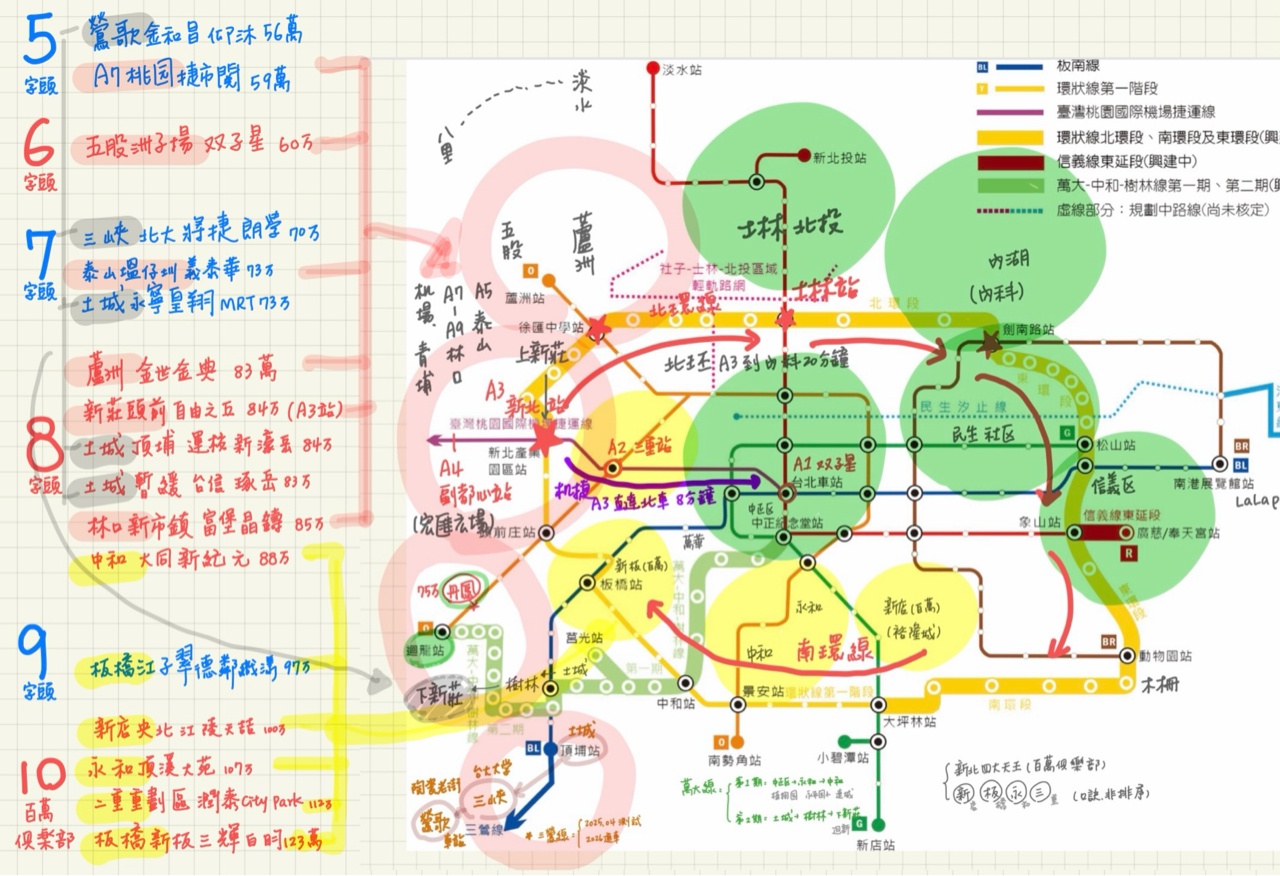 5
字頭
鶯歌 金和昌 仰沐 56萬
A7 桃园捷市閱 59萬
6
字頭
五股洲子場 双子星 60万
7
字頭
三峽 北大 將捷 朗瑩 70万
泰山塭仔圳 義泰華 73万
土城永寧皇翔MRT 73万
8
字頭
蘆洲 金世金典 83萬
新莊頭前 自由之丘 84万 (A3站)
土城 頂埔 運格 新濠岳 84万
土城 暫緩 台信 琢岳 83万
林口 新市鎮 富堡晶鑄 85万
中和 大同新紀元 88万
9
字頭
板橋江子翠德鄰 97万
10
百萬
俱樂部
新店央北 江陵天喆 100万
永和頂溪大苑 107万
二重重劃區 潤泰City Park 112万
板橋新板三輝白昀 123萬
BL 板南線
Y 環狀線第一階段
臺灣桃園國際機場捷運線
環狀線北環段、南環段及東環段(興
信義線東延段(興建中)
萬大-中和-樹林線第一期、第二期(興
虛線部分：規劃中路線(尚未核定)
淡水站
淡水
八里
新北投站
士林 北投
內湖
(內科)
五股
蘆洲
社子-士林-北投區域
輕軌路網
士林站
O
蘆洲站
徐匯中學站
北環線
北環段
劍南路站
機場
青埔
A7-A9 林口
A5 泰山
上新莊
北环 A3 到內科 20分鐘
東環段
A3
新北站
臺灣桃園國際機場捷運線
民生汐止線
民生社区
G
松山站
新北產業
園區站
A2 三重站
A1 双子星
台北車站
BR
BL
南港展覽館站
LaLap
A4
副都心站
(宏匯広場)
机捷
A3直達北車 8分鐘
中正区
中正紀念堂站
信義区
象山站
信義線東延段
廣慈/奉天宮站
R
頭前庄站
萬華
新板(百萬)
板橋站
萬大-中和-樹林線
75万
丹鳳
O
迴龍站
永和
新店(百萬)
(裕隆城)
東環段
莒光站
土城
第一期
中和
南環線
BR
動物園站
木柵
下新莊
樹林
萬大-中和-樹林線
第二期
中和站
景安站
環狀線第一階段
大坪林站
南環段
BL
頂埔站
土城
O
南勢角站
小碧潭站
陶瓷老街
台北大学
三峽
鶯歌
車站
三鶯線
* 三鶯線
2025.04 測試
2026通車
萬大線:
第1期: 中正区→永和→中和
第2期: 土城→樹林→下新莊
迴龍
G
新店站
新北四大天王 (百萬俱樂部)
新 板 永 三
(口訣.非排序)